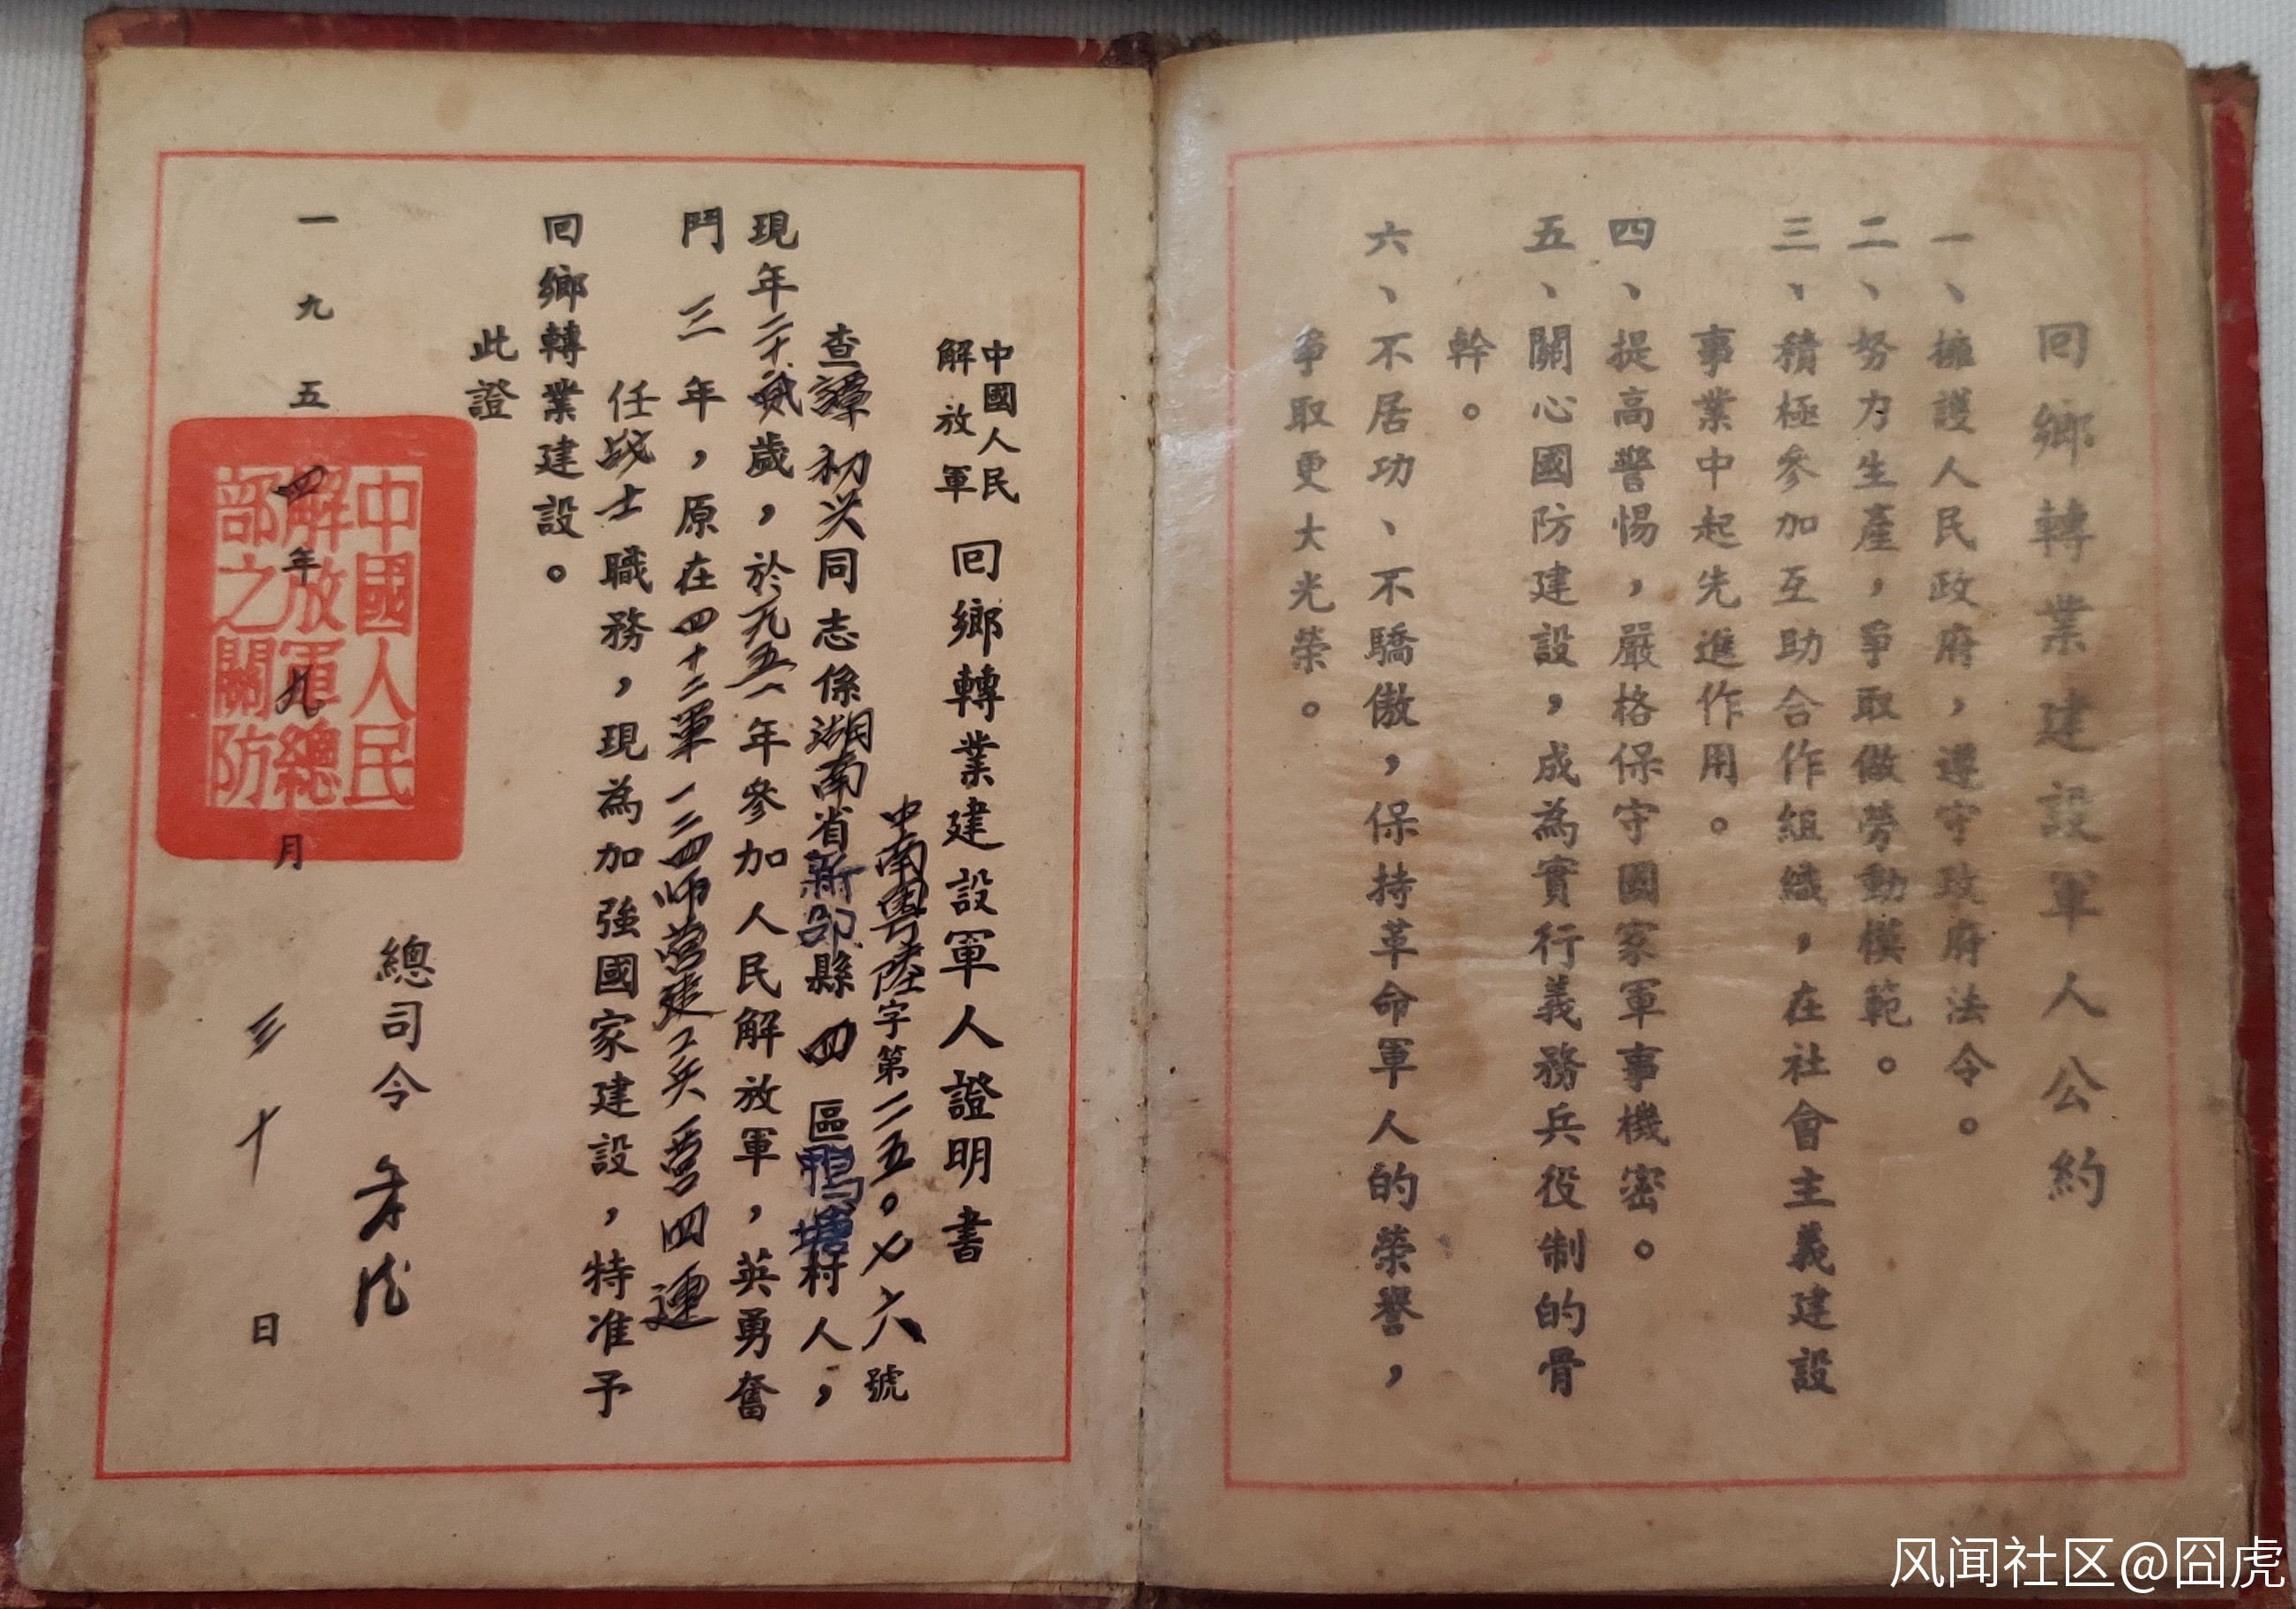 回鄉轉業建設軍人公約
一、擁護人民政府，遵守政府法令。
二、努力生產，爭取做勞動模範。
三、積極參加互助合作組織，在社會主義建設
事業中起先進作用。
四、提高警惕，嚴格保守國家軍事機密。
五、關心國防建設，成為實行義務兵役制的骨
幹。
六、不居功、不驕傲，保持革命軍人的榮譽，
爭取更大光榮。
中國人民
解放軍
回鄉轉業建設軍人證明書
中南粵陸字第二五〇七六號
查譚初兴同志係湖南省新邵縣四區鴨塘村人，
現年二十貳歲，於一九五一年參加人民解放軍，英勇奮
鬥三年，原在四十二軍一二四师营建工兵营四連
任战士職務，現為加強國家建設，特准予
回鄉轉業建設。
此證
總司令 朱德
一九五四年九月三十日
中國人民
解放軍總
部之關防
风闻社区@囧虎